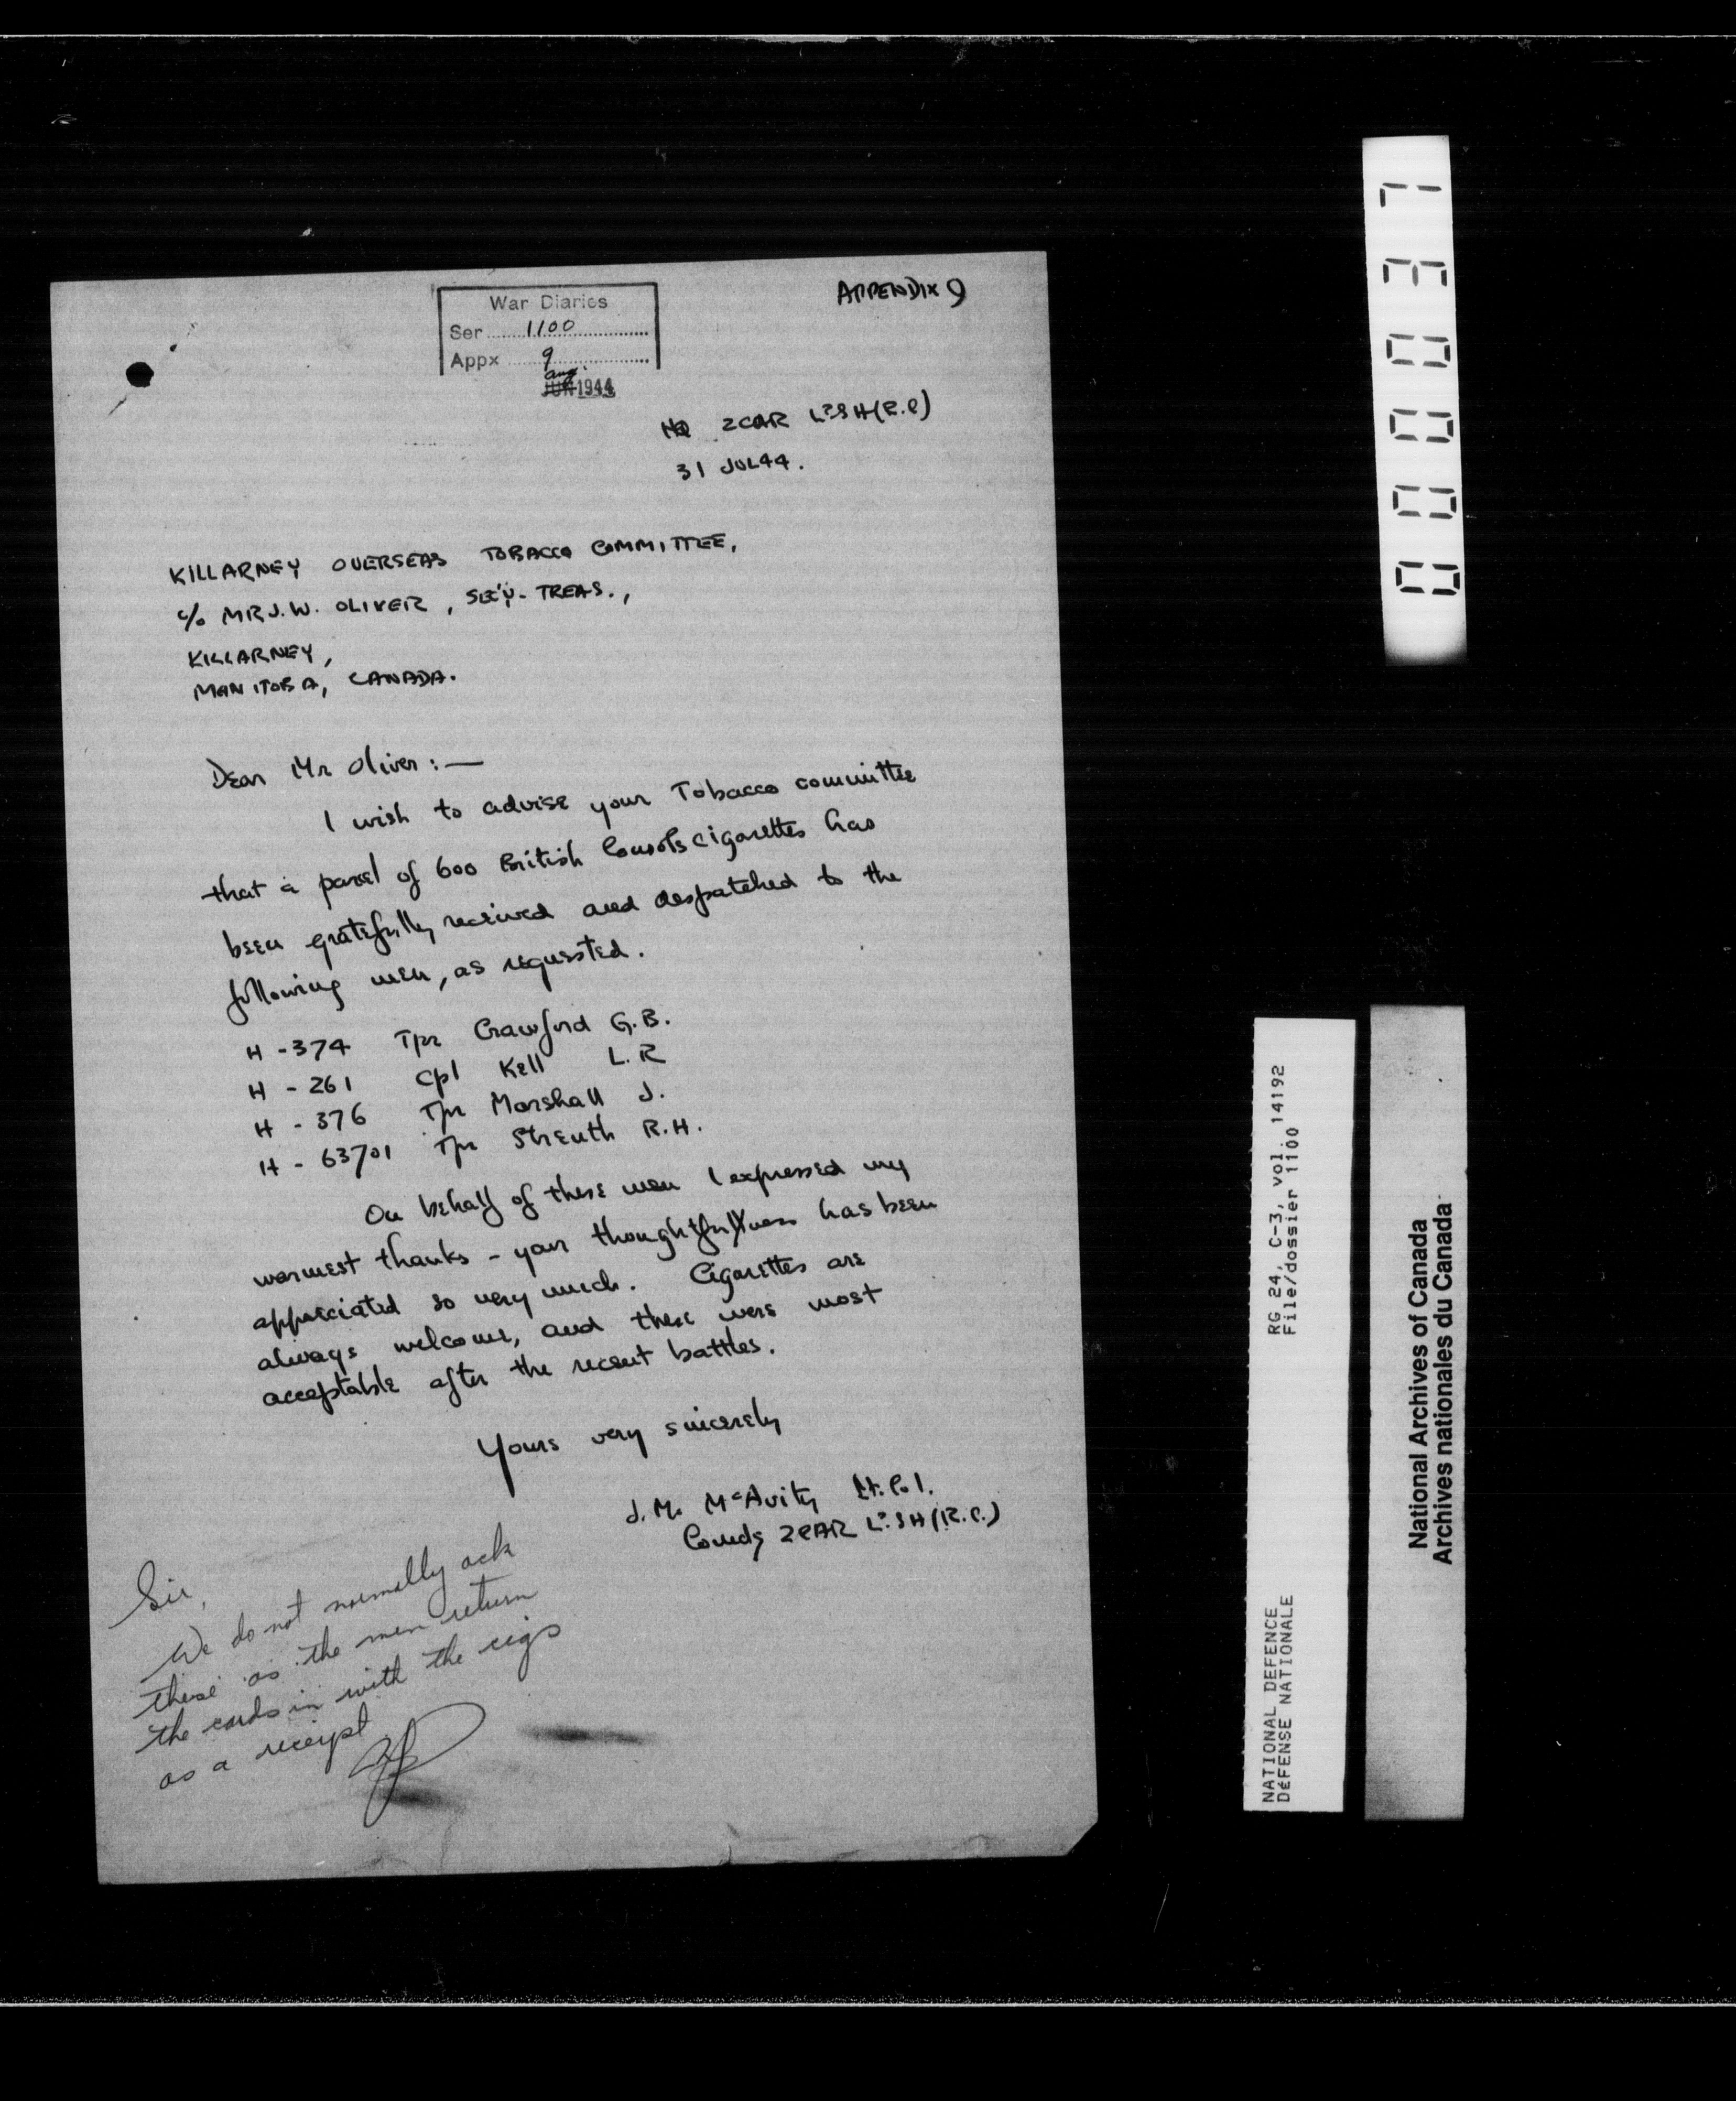 War Diaries
Ser 1100
Appx 9
Aug.
JUN 1944
APPENDIX 9
HQ 2CAR LdSH(R.C)
31 JUL 44.
KILLARNEY OVERSEAS TOBACCO COMMITTEE,
c/o MR J.W. OLIVER, SEC'Y-TREAS.,
KILLARNEY,
MANITOBA, CANADA.
Dear Mr Oliver:—
I wish to advise your Tobacco committee
that a parcel of 600 British Consols cigarettes has
been gratefully received and despatched to the
following men, as requested.
H - 374 Tpr Crawford G.B.
H - 261 Cpl Kell L.R
H - 376 Tpr Marshall J.
H - 63701 Tpr Streuth R.H.
On behalf of these men I expressed my
warmest thanks - your thoughtfulness has been
appreciated so very much. Cigarettes are
always welcome, and these were most
acceptable after the recent battles.
Yours very sincerely
J.M. McAvity Lt. Col.
Comdg 2CAR LdSH(R.C.)
Sir,
We do not normally ack
these as the men return
the cards in with the cigs
as a receipt
0000037
RG 24, C-3, vol. 14192
File/dossier 1100
NATIONAL DEFENCE
DéFENSE NATIONALE
National Archives of Canada
Archives nationales du Canada